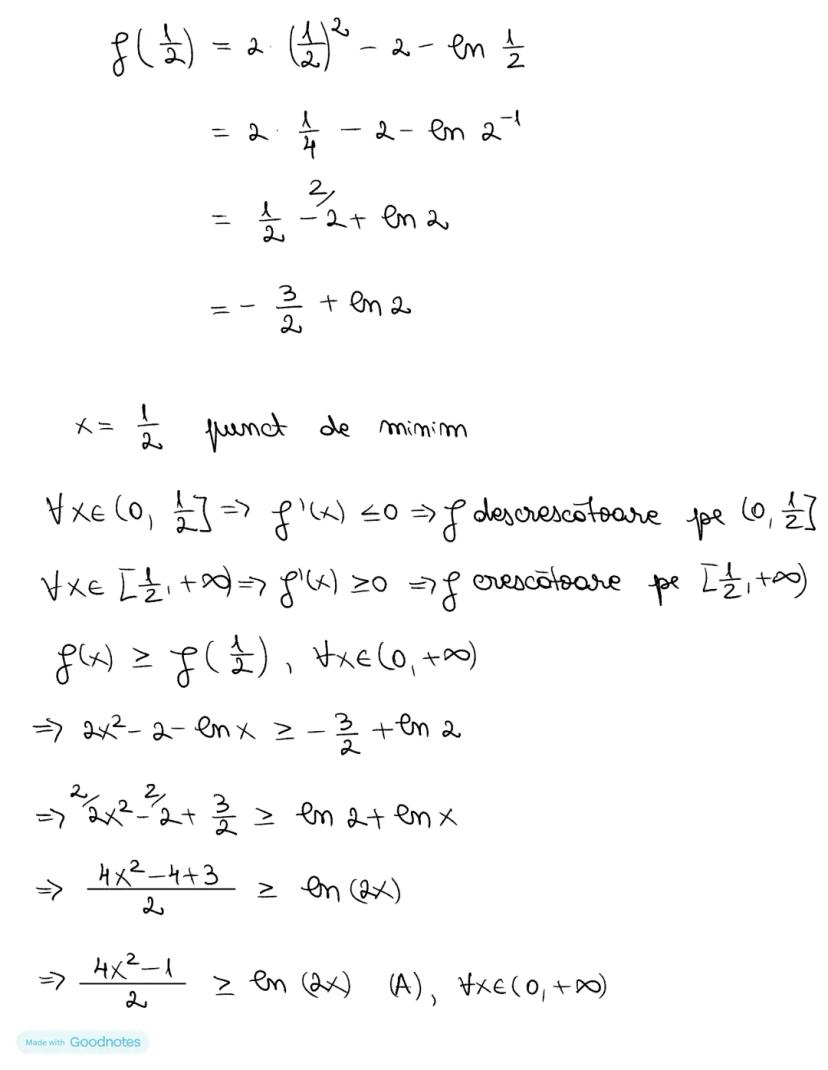 f(1/2) = 2 · (1/2)² - 2 - ln 1/2
= 2 · 1/4 - 2 - ln 2⁻¹
= 1/2 - ²⁄2 + ln 2
= - 3/2 + ln 2
x = 1/2 punct de minim
∀x∈(0, 1/2] => f'(x) ≤0 => f descrescătoare pe (0, 1/2]
∀x∈ [1/2, +∞) => f'(x) ≥0 => f crescătoare pe [1/2, +∞)
f(x) ≥ f(1/2), ∀x∈(0, +∞)
=> 2x² - 2 - ln x ≥ - 3/2 + ln 2
=> ²⁄2x² - ²⁄2 + 3/2 ≥ ln 2 + ln x
=> (4x² - 4 + 3)/2 ≥ ln (2x)
=> (4x² - 1)/2 ≥ ln (2x) (A), ∀x∈(0, +∞)
Made with Goodnotes